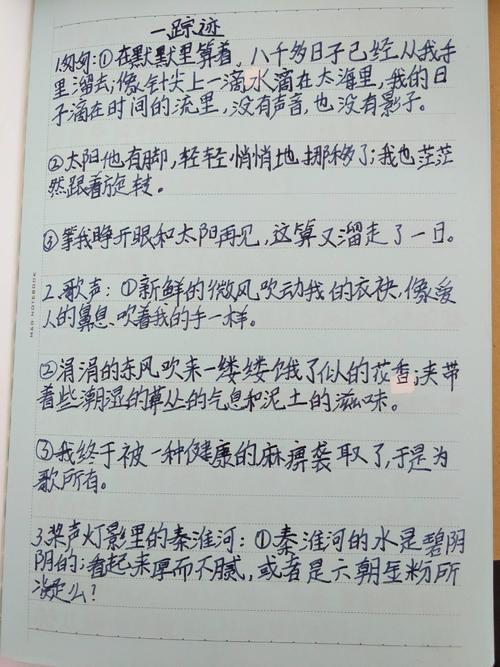 一踪迹
1.匆匆:①在默默里算着,八千多日子已经从我手
里溜去;像针尖上一滴水滴在大海里,我的日
子滴在时间的流里,没有声音,也没有影子。
②太阳他有脚,轻轻悄悄地挪移了;我也茫茫
然跟着旋转。
③等我睁开眼和太阳再见,这算又溜走了一日。
2.歌声:①新鲜的微风吹动我的衣袂,像爱
人的鼻息吹着我的手一样。
②涓涓的东风吹来一缕缕饿了似的花香;夹带
着些潮湿的草丛的气息和泥土的滋味。
③我终于被一种健康的麻痹袭取了,于是为
歌所有。
3.桨声灯影里的秦淮河:①秦淮河的水是碧阴
阴的;看起来厚而不腻,或者是六朝金粉所
凝么?
M&G NOTEBOOK